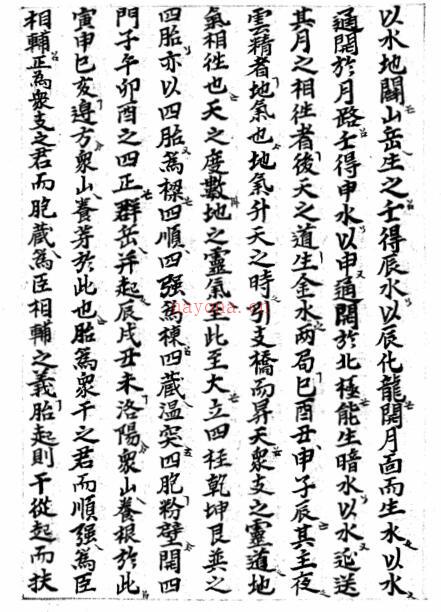 以水地闢山岳生之壬得辰水以辰化龍開月面而生水以水
通開於月路壬得申水以申通開於北極能生暗水以水延送
其月之相徃者後天之道生金水两局巳酉丑申子辰其主夜
雲精者地氣也地氣升天之時引支橋而昇天衆支之靈道地
氣相徃也天之度數地之靈氣至此至大立四柱乾坤艮巽之
四胎亦以四胎為樑四順四强為棟四藏温突四胞粉壁開四
門子午卯酉之四正群岳并起辰戌丑未洛陽衆山養根於此
寅申巳亥邊方衆山養芽於此也胎為衆干之君而順强為臣
相輔正為衆支之君而胞藏為臣相輔之義胎起則干從起而扶
nayona.cn